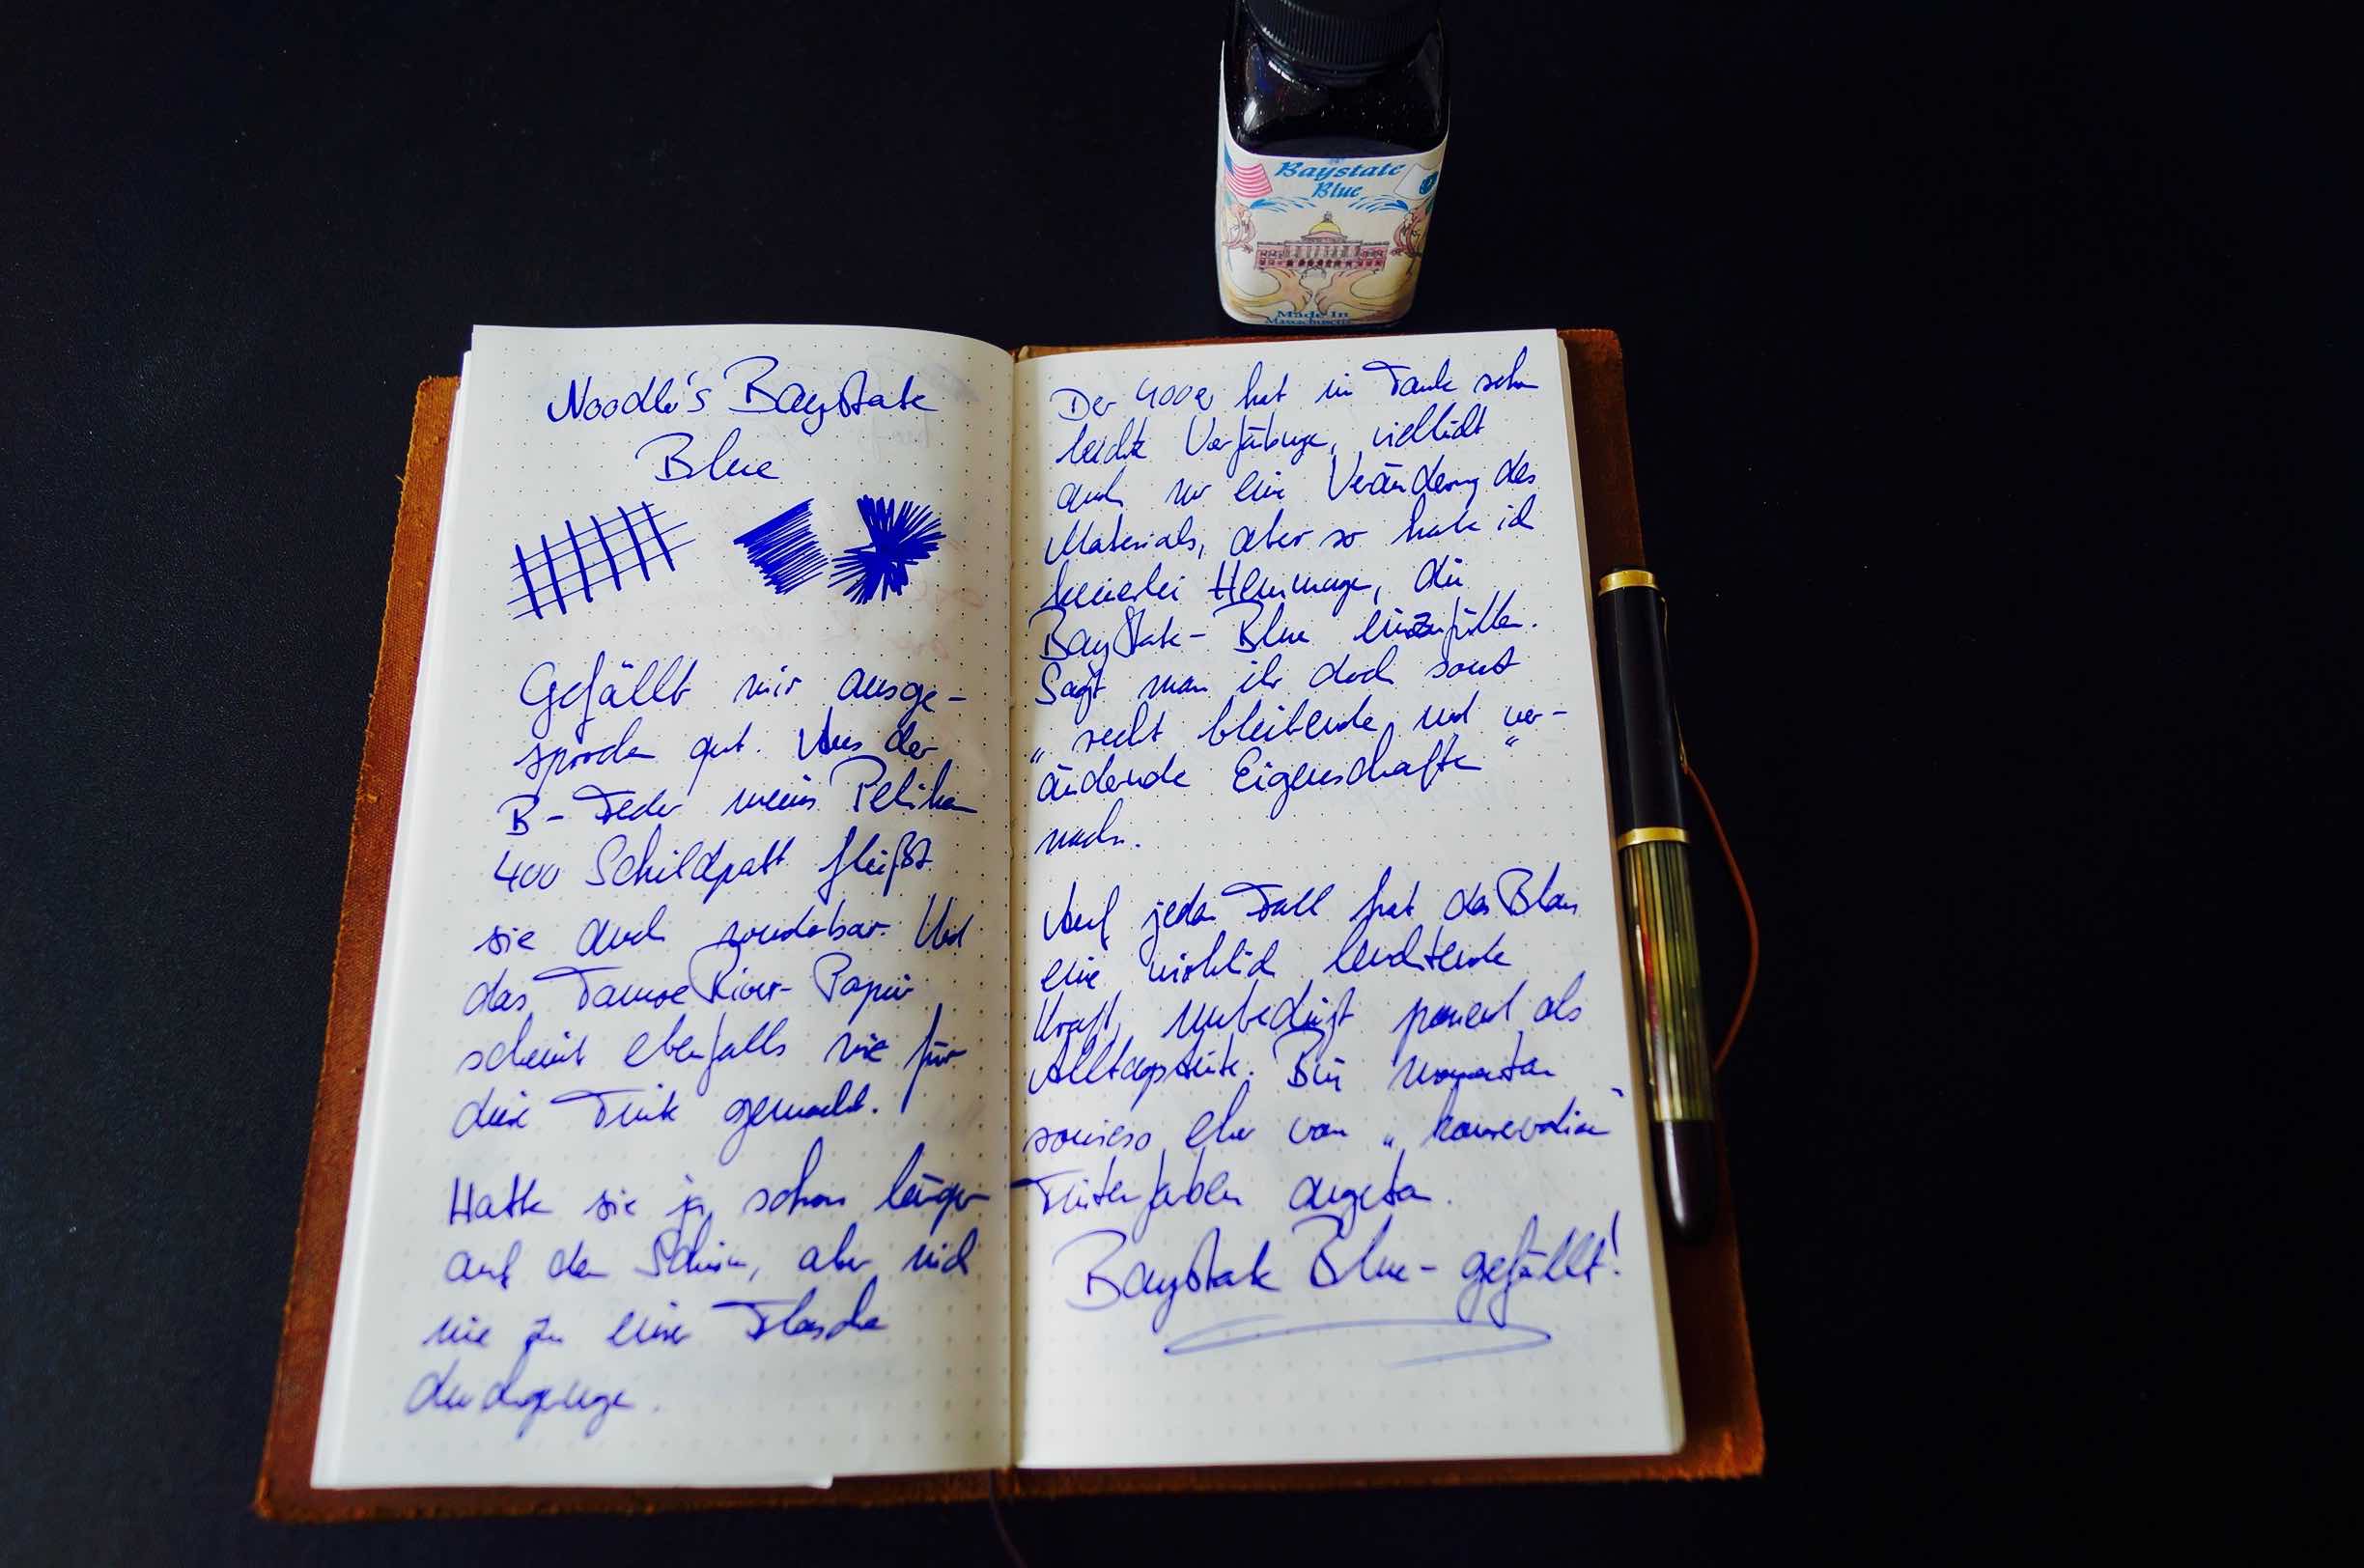 Baystate
Blue
Made In
Massachusetts
Noodler's Baystate
Blue
Gefällt mir ausge-
sprochen gut. Aus der
B-Feder meines Pelikan
400 Schildpatt fließt
sie auch wunderbar. Und
das Tomoe River-Papier
scheint ebenfalls wie für
diese Tinte gemacht.
Hatte sie ja schon länger
auf dem Schirm, aber mich
nie zu einer Flasche
durchgerungen.
Der 400er hat im Tank schon
leichte Verfärbungen, vielleicht
auch nur eine Veränderung des
Materials, aber so hatte ich
keinerlei Hemmungen, die
Baystate-Blue einzufüllen.
Sagt man ihr doch sonst
„recht bleibende und ver-
ändernde Eigenschaften“
nach.
Auf jeden Fall hat das Blau
eine wirklich leuchtende
Kraft, unbedingt passend als
Alltagstinte. Bin momentan
sowieso eher von „konservativen“
Tintenfarben angetan.
Baystate Blue- gefällt!